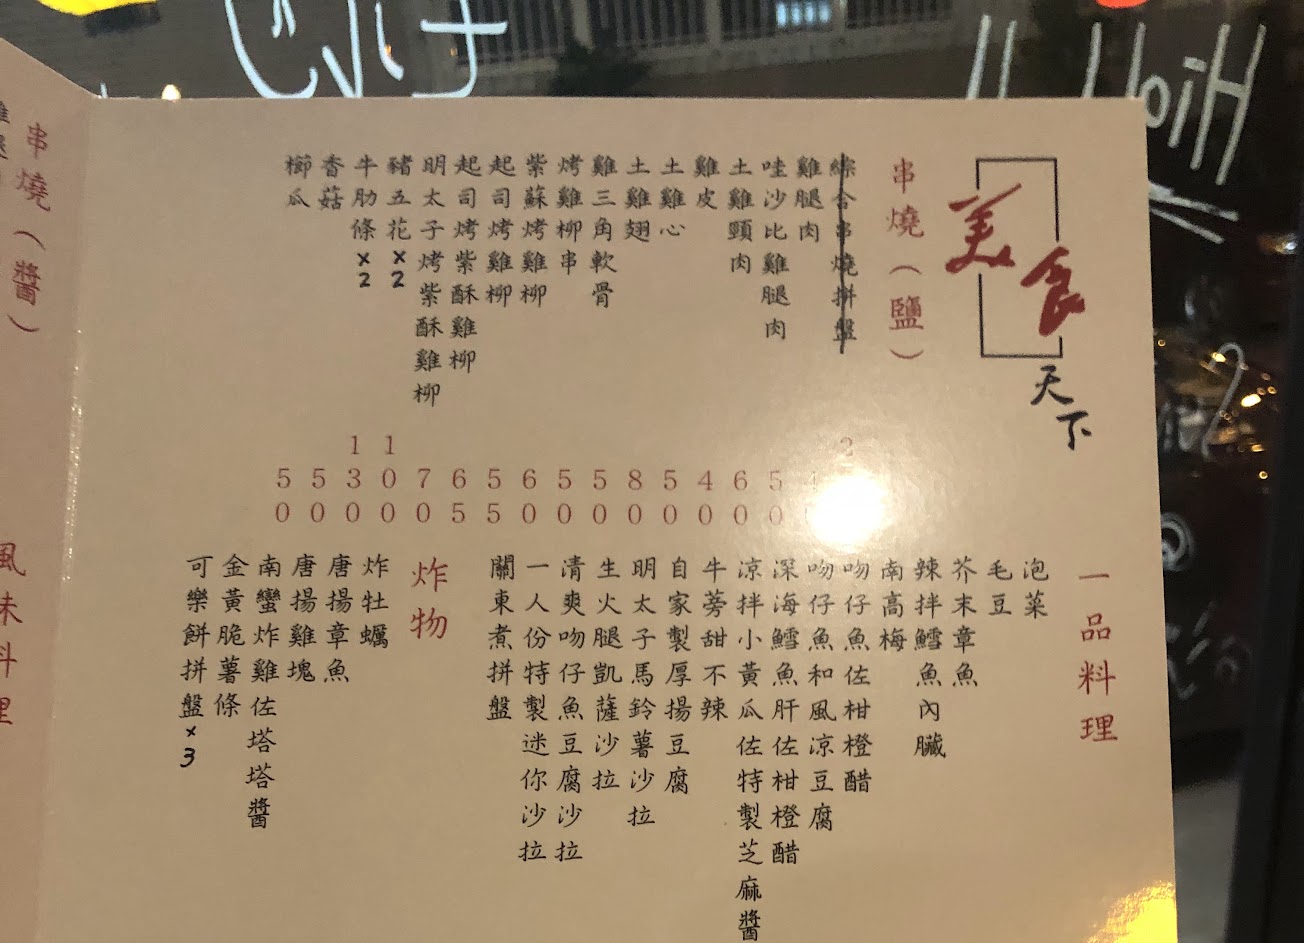 美食
天下
串燒（鹽）
綜合串燒拼盤
雞腿肉
哇沙比雞腿肉 50
土雞頸肉 60
雞皮 40
土雞心 50
土雞翅 80
雞三角軟骨 50
烤雞柳串 50
紫蘇烤雞柳 60
起司烤雞柳 55
起司烤紫酥雞柳 65
明太子烤紫酥雞柳 70
豬五花×2 100
牛肋條×2 130
香菇 50
櫛瓜 50
一品料理
泡菜
毛豆
芥末章魚
辣拌鱈魚內臟
南高梅
吻仔魚佐柑橙醋
吻仔魚和風涼豆腐
深海鱈魚肝佐柑橙醋
涼拌小黃瓜佐特製芝麻醬
牛蒡甜不辣
自家製厚揚豆腐
明太子馬鈴薯沙拉
生火腿凱薩沙拉
清爽吻仔魚豆腐沙拉
一人份特製迷你沙拉
關東煮拼盤
炸物
炸牡蠣
唐揚章魚
唐揚雞塊
南蠻炸雞佐塔塔醬
金黃脆薯條
可樂餅拼盤×3
串燒（醬）
風味料理